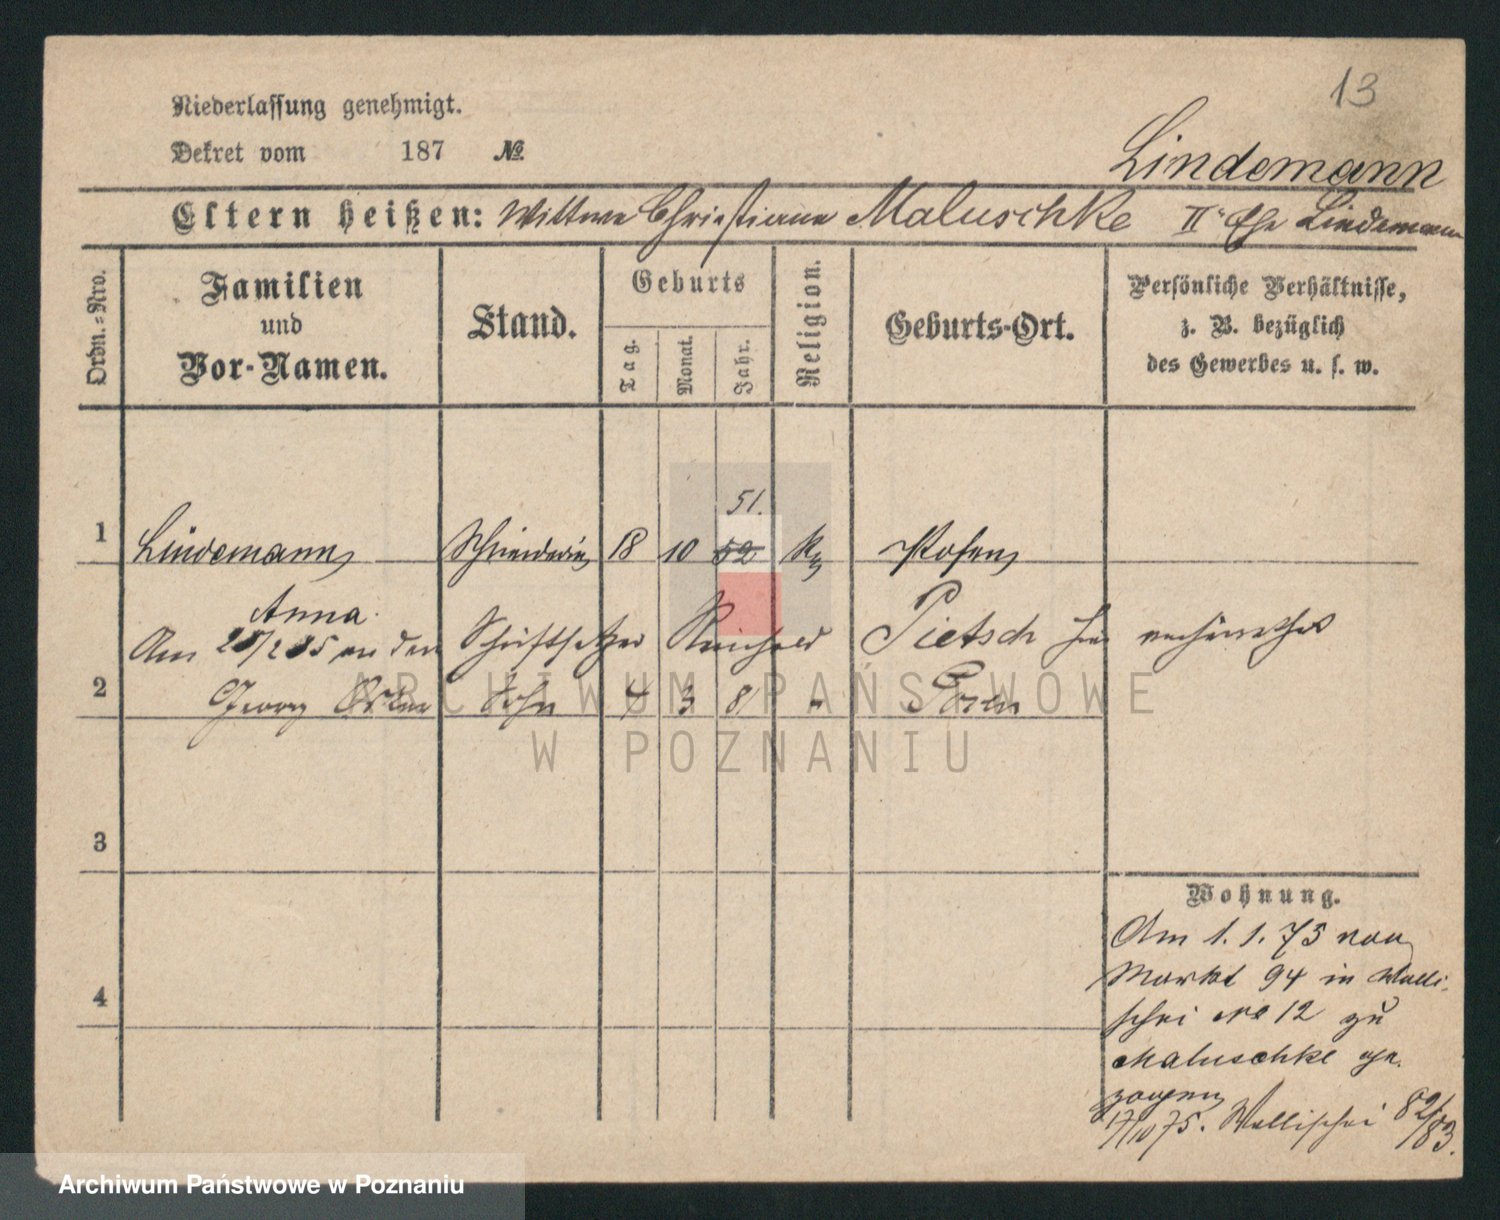 13
Niederlassung genehmigt.
Dekret vom 187 №
Lindemann
Eltern heißen: Wittwe Christiane Maluschke II. Ehe Lindemann
Ordn.-Nro.
Familien und Vor-Namen.
Stand.
Geburts
Tag.
Monat.
Jahr.
Religion.
Geburts-Ort.
Persönliche Verhältnisse,
z. B. bezüglich
des Gewerbes u. s. w.
51.
1 Lindemann Schneiderin 18 10 52 Posen
Anna
Am an den Schriftsetzer Reinhold Pietsch hier verheirathet
2 Georg Sohn 4 3 8 " Posen
3
4
Wohnung.
Am 1. 1. 75 von
Markt 94 in Walli-
schei No 12 zu
Maluschke ge-
zogen
17/10 75. Wallischei 82/83.
ARCHIWUM PAŃSTWOWE
W POZNANIU
Archiwum Państwowe w Poznaniu